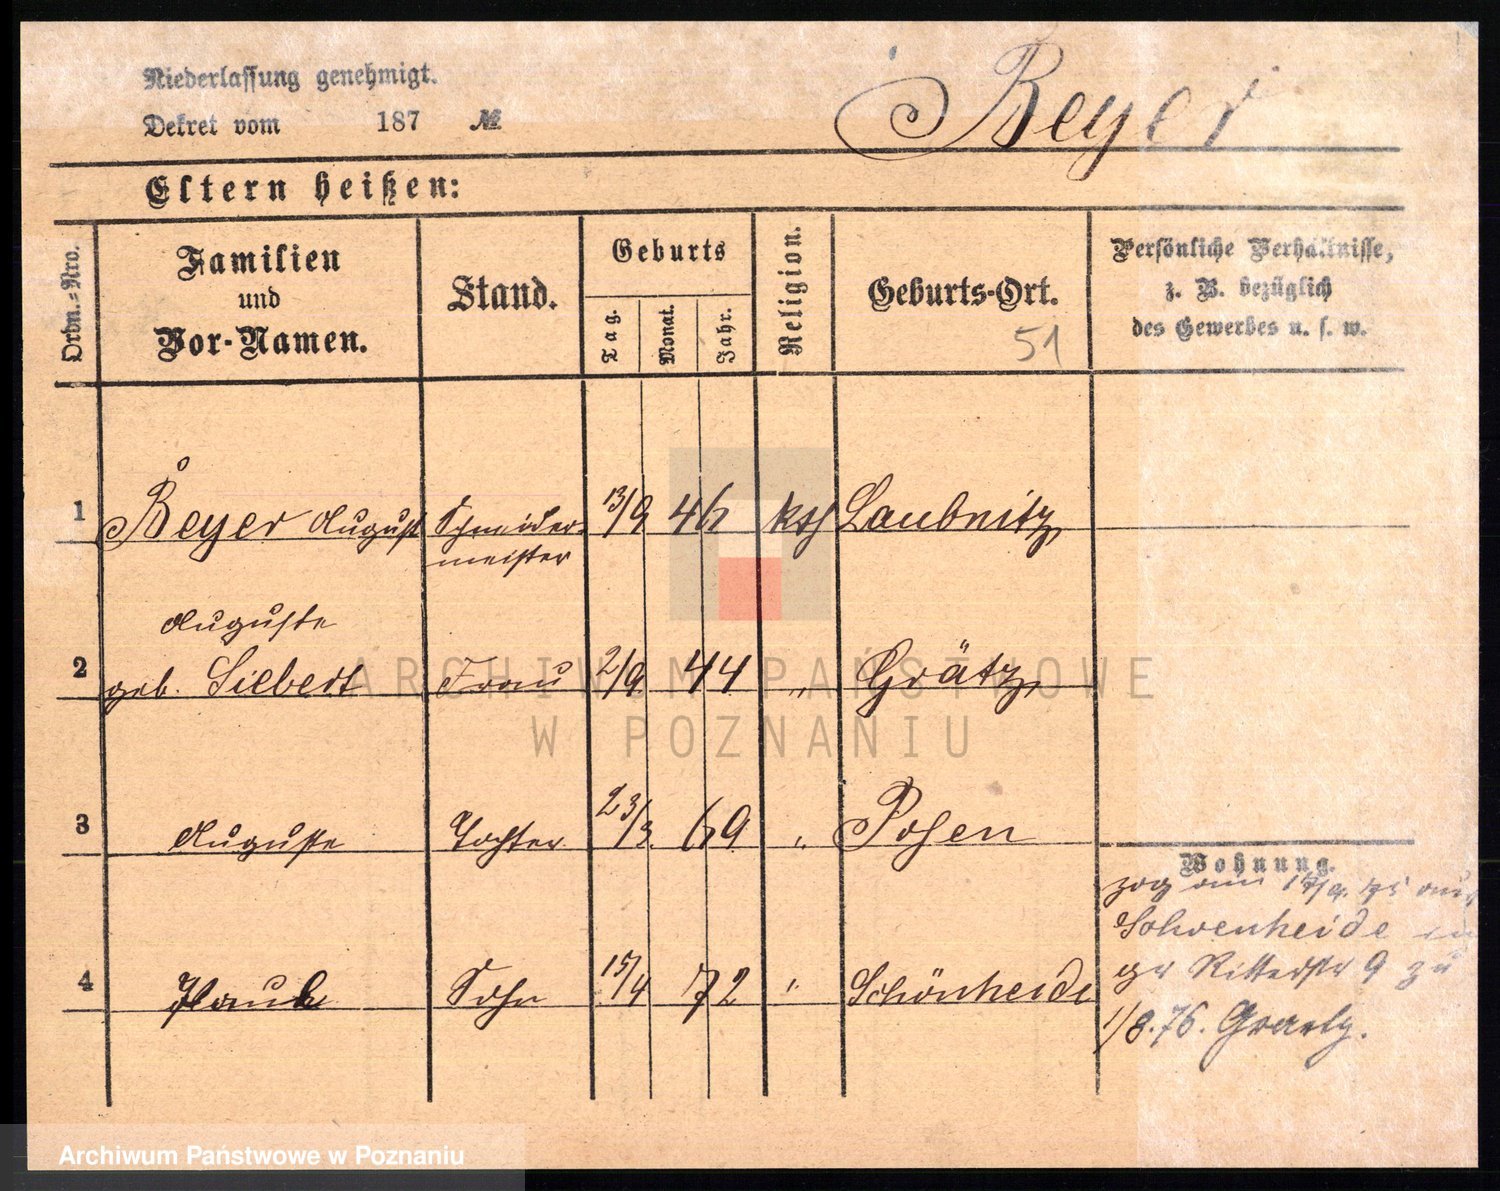 Niederlassung genehmigt.
Dekret vom 187 №
Beyer
Eltern heißen:
Ordn.=Nro.
Familien
und
Vor-Namen.
Stand.
Geburts
Tag.
Monat.
Jahr.
Religion.
Geburts-Ort.
51
Persönliche Verhältnisse,
z. B. bezüglich
des Gewerbes u. s. w.
1 Beyer August Schneider- 13/9 46 kth Laubnitz
meister
Auguste
2 geb. Siebert Frau 2/9 44 " Grätz
3 Auguste Tochter 23/3. 69 " Posen
4 Paul Sohn 15/4 72 " Schönheide
Wohnung.
zog am 17/9. 75 aus
Schoenheide in
Ritterstr 9 zu
1/8.76. Graetz.
ARCHIWUM PAŃSTWOWE
W POZNANIU
Archiwum Państwowe w Poznaniu